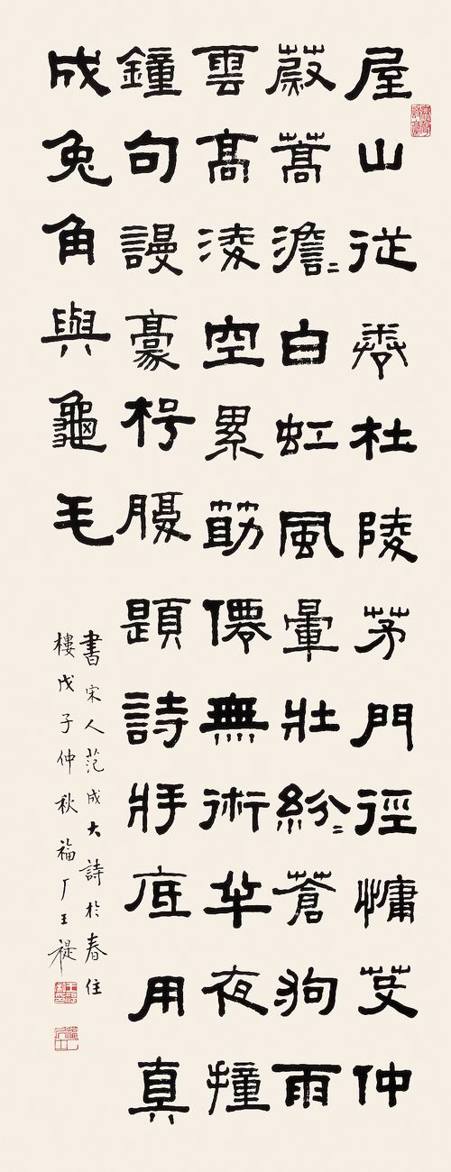 屋山從卷杜陵茅門徑慵芟仲
蔚蒿澹〻白虹風暈壯紛〻蒼狗雨
雲高淩空累筋僊無術半夜撞
鐘句謾豪枵腹題詩將底用真
成兔角與龜毛
書宋人范成大詩於春住
樓戊子仲秋福厂王禔